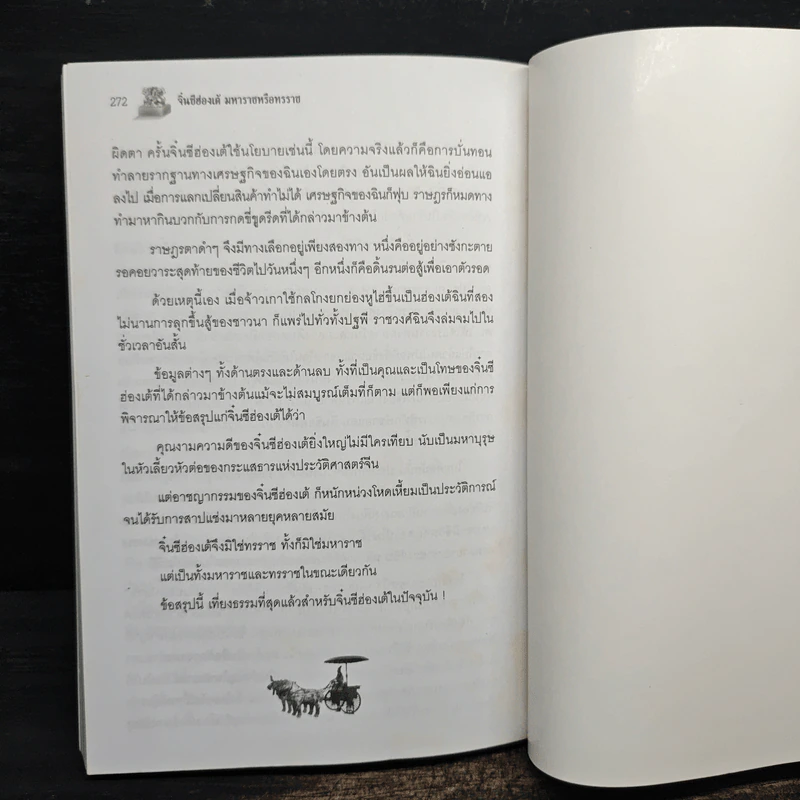 272 จิ๋นซีฮ่องเต้ มหาราชหรือทรราช
ผิดตา ครั้นจิ๋นซีฮ่องเต้ใช้นโยบายเช่นนี้ โดยความจริงแล้วก็คือการบั่นทอน
ทำลายรากฐานทางเศรษฐกิจของฉินเองโดยตรง อันเป็นผลให้ฉินยิ่งอ่อนแอ
ลงไป เมื่อการแลกเปลี่ยนสินค้าทำไม่ได้ เศรษฐกิจของฉินก็ฟุบ ราษฎรก็หมดทาง
ทำมาหากินบวกกับการกดขี่ขูดรีดที่ได้กล่าวมาข้างต้น
ราษฎรตาดำๆ จึงมีทางเลือกอยู่เพียงสองทาง หนึ่งคืออยู่อย่างซังกะตาย
รอคอยวาระสุดท้ายของชีวิตไปวันหนึ่งๆ อีกหนึ่งก็คือดิ้นรนต่อสู้เพื่อเอาตัวรอด
ด้วยเหตุนี้เอง เมื่อจ้าวเกาใช้กลโกงยกย่องหูไฮ่ขึ้นเป็นฮ่องเต้ฉินที่สอง
ไม่นานการลุกขึ้นสู้ของชาวนา ก็แพร่ไปทั่วทั้งปฐพี ราชวงศ์ฉินจึงล่มจมไปใน
ชั่วเวลาอันสั้น
ข้อมูลต่างๆ ทั้งด้านตรงและด้านลบ ทั้งที่เป็นคุณและเป็นโทษของจิ๋นซี
ฮ่องเต้ที่ได้กล่าวมาข้างต้นแม้จะไม่สมบูรณ์เต็มที่ก็ตาม แต่ก็พอเพียงแก่การ
พิจารณาให้ข้อสรุปแก่จิ๋นซีฮ่องเต้ได้ว่า
คุณงามความดีของจิ๋นซีฮ่องเต้ยิ่งใหญ่ไม่มีใครเทียบ นับเป็นมหาบุรุษ
ในหัวเลี้ยวหัวต่อของกระแสธารแห่งประวัติศาสตร์จีน
แต่อาชญากรรมของจิ๋นซีฮ่องเต้ ก็หนักหน่วงโหดเหี้ยมเป็นประวัติการณ์
จนได้รับการสาปแช่งมาหลายยุคหลายสมัย
จิ๋นซีฮ่องเต้จึงมิใช่ทรราช ทั้งก็มิใช่มหาราช
แต่เป็นทั้งมหาราชและทรราชในขณะเดียวกัน
ข้อสรุปนี้ เที่ยงธรรมที่สุดแล้วสำหรับจิ๋นซีฮ่องเต้ในปัจจุบัน !